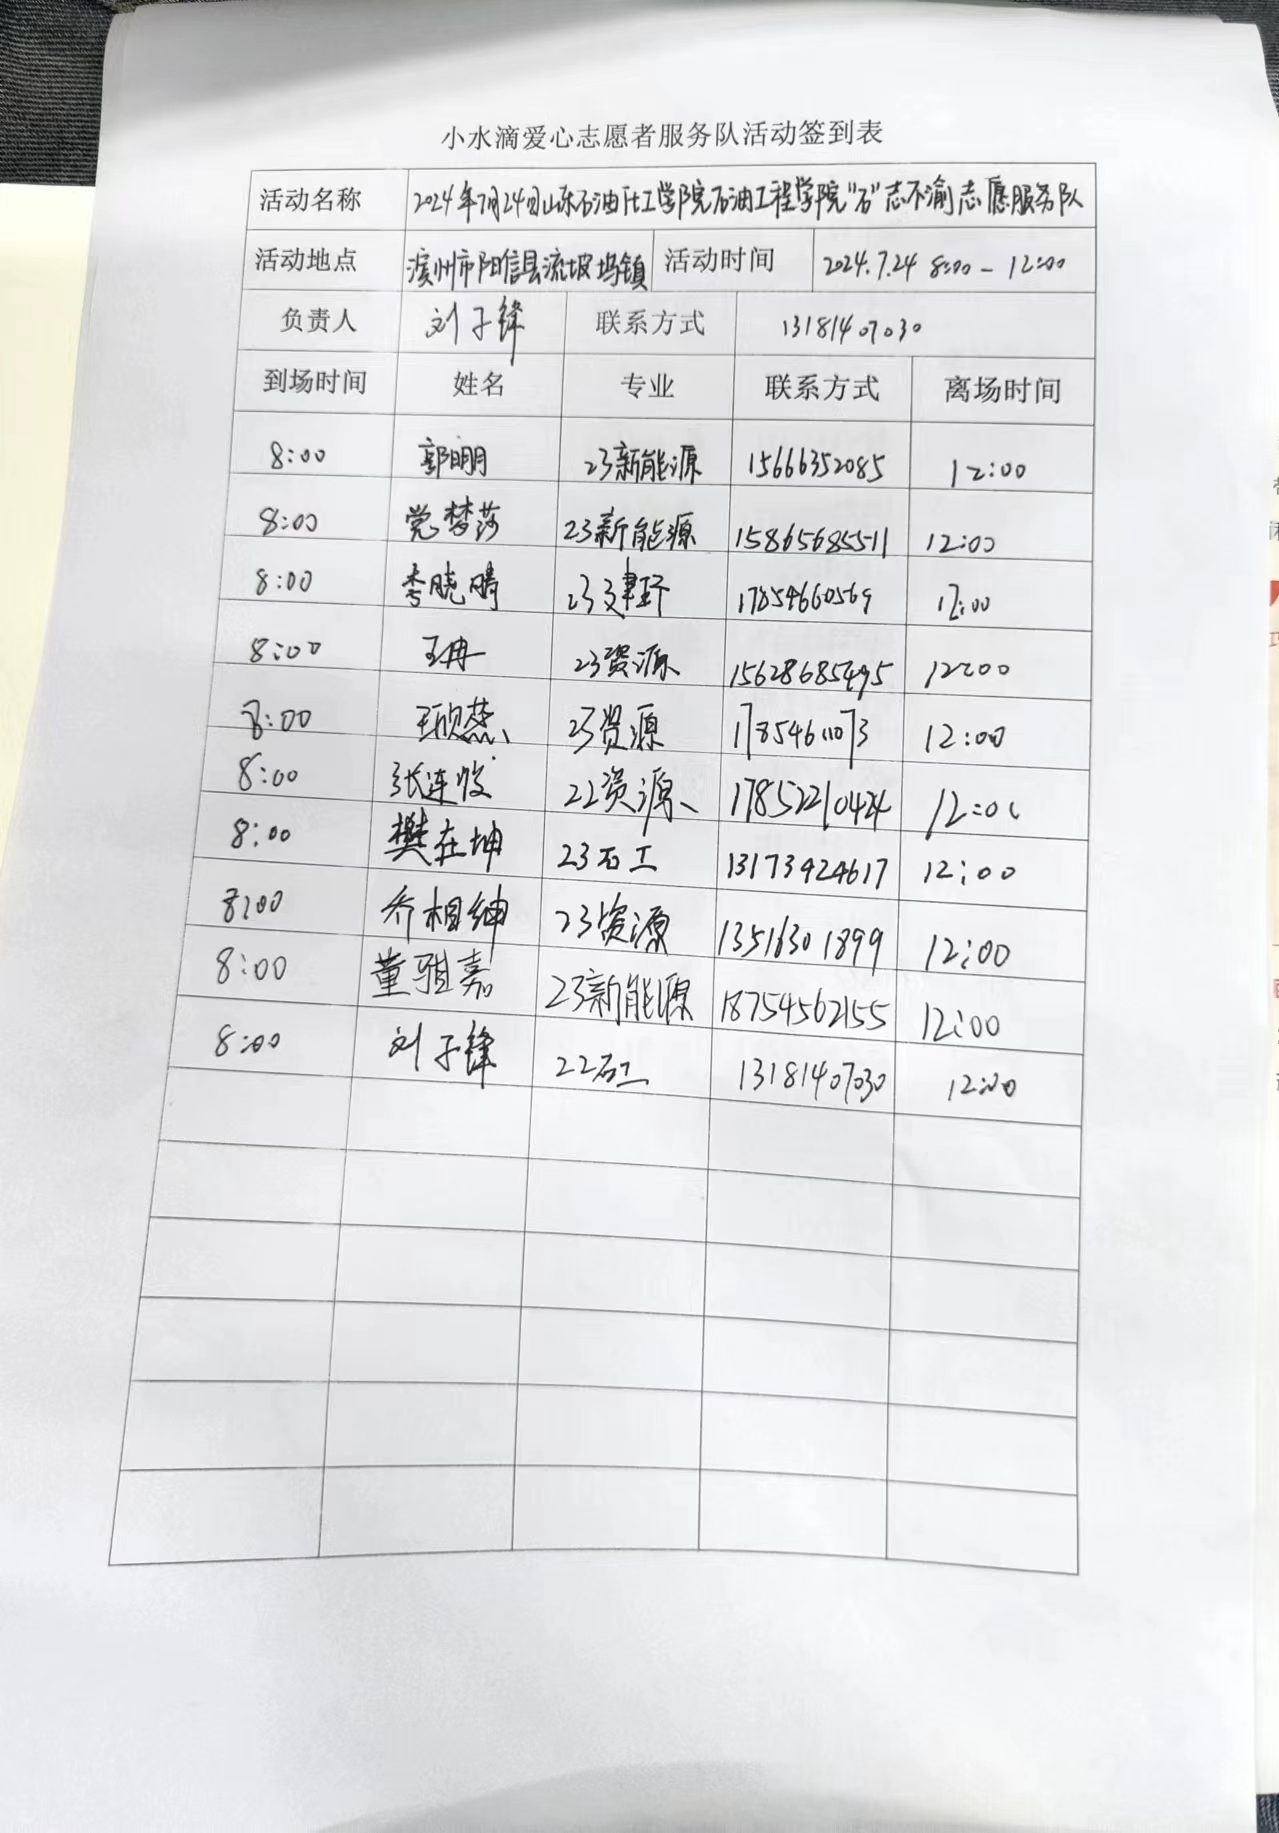 小水滴爱心志愿者服务队活动签到表
活动名称 2024年7月24日山东石油化工学院石油工程学院“石”志不渝志愿服务队
活动地点 滨州市阳信县流坡坞镇 活动时间 2024.7.24 8:00-12:00
负责人 刘子锋 联系方式 13181407030
到场时间 姓名 专业 联系方式 离场时间
8:00 郭明明 23新能源 15666352085 12:00
8:00 党梦莎 23新能源 15865685511 12:00
8:00 李晓晴 17854660569 12:00
8:00 王冉 23资源 15628685495 12:00
8:00 王欣蕊 23资源 17854611073 12:00
8:00 张连俊 22资源 17852210424 12:00
8:00 樊在坤 23石工 13173424617 12:00
8:00 乔相绅 23资源 13516301899 12:00
8:00 董雅嘉 23新能源 18754562155 12:00
8:00 刘子锋 22石工 13181407030 12:00